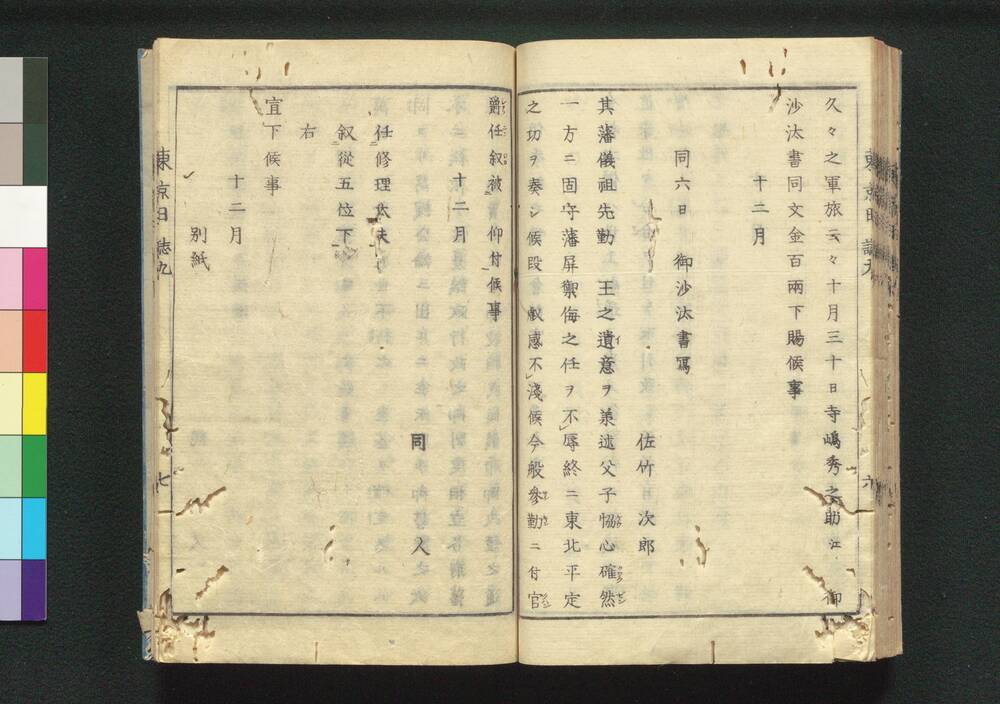 久々之軍旅云々十月三十日寺嶋秀之助江 御
沙汰書同文金百兩下賜候事
十二月
同六日 御沙汰書寫
佐竹次郎
其藩儀祖先勤 王之遺意ヲ兼述父子恊心確然
一方ニ固守藩屏禦侮之任ヲ不辱終ニ東北平定
之功ヲ奏シ候段 叡感不淺候今般參勤ニ付官
爵任叙被 仰付候事
十二月
同人
任修理大夫
叙從五位下
右
宣下候事
十二月
別紙
東京日誌九
七